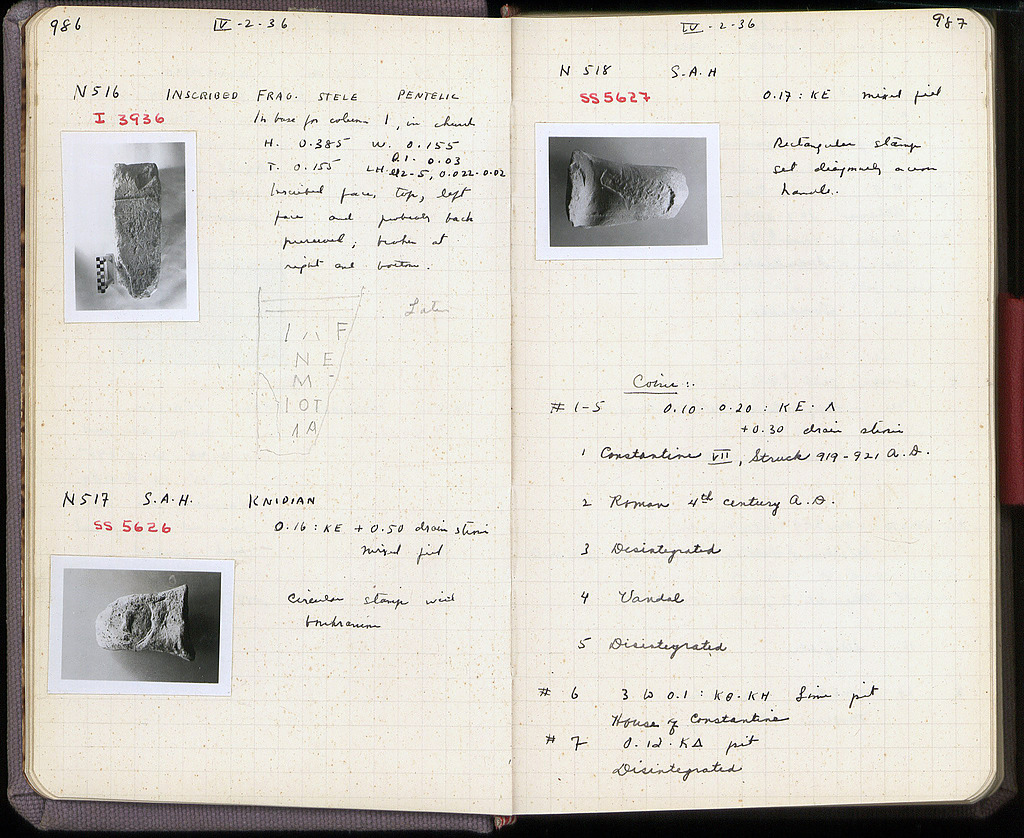 986
IV-2-36
N516 INSCRIBED FRAG. STELE PENTELIC
I 3936
In base for column 1, in church
H. 0.385 W. 0.155
T. 0.155 LH. l1. 0.03
l2-5, 0.022-0.02
Inscribed face, top, left
face and probably back
preserved; broken at
right and bottom.
Later
F
N E
M
I O T
Λ A
N517 S.A.H. KNIDIAN
SS 5626
0.16 : KE + 0.50 drain strosis
mixed fill
Circular stamp with
boukranion
IV-2-36
987
N 518 S.A.H
SS 5627
0.17 : KE mixed fill
Rectangular stamp
set diagonally across
handle.
Coins :.
# 1-5 0.10 - 0.20 : KE - Λ
+0.30 drain strosis
1 Constantine VII, Struck 919-921 A.D.
2 Roman 4th century A.D.
3 Disintegrated
4 Vandal
5 Disintegrated
# 6 3 W 0.1 : KΘ - KH Lime pit
House of Constantine
# 7 0.12 - KΔ pit
Disintegrated